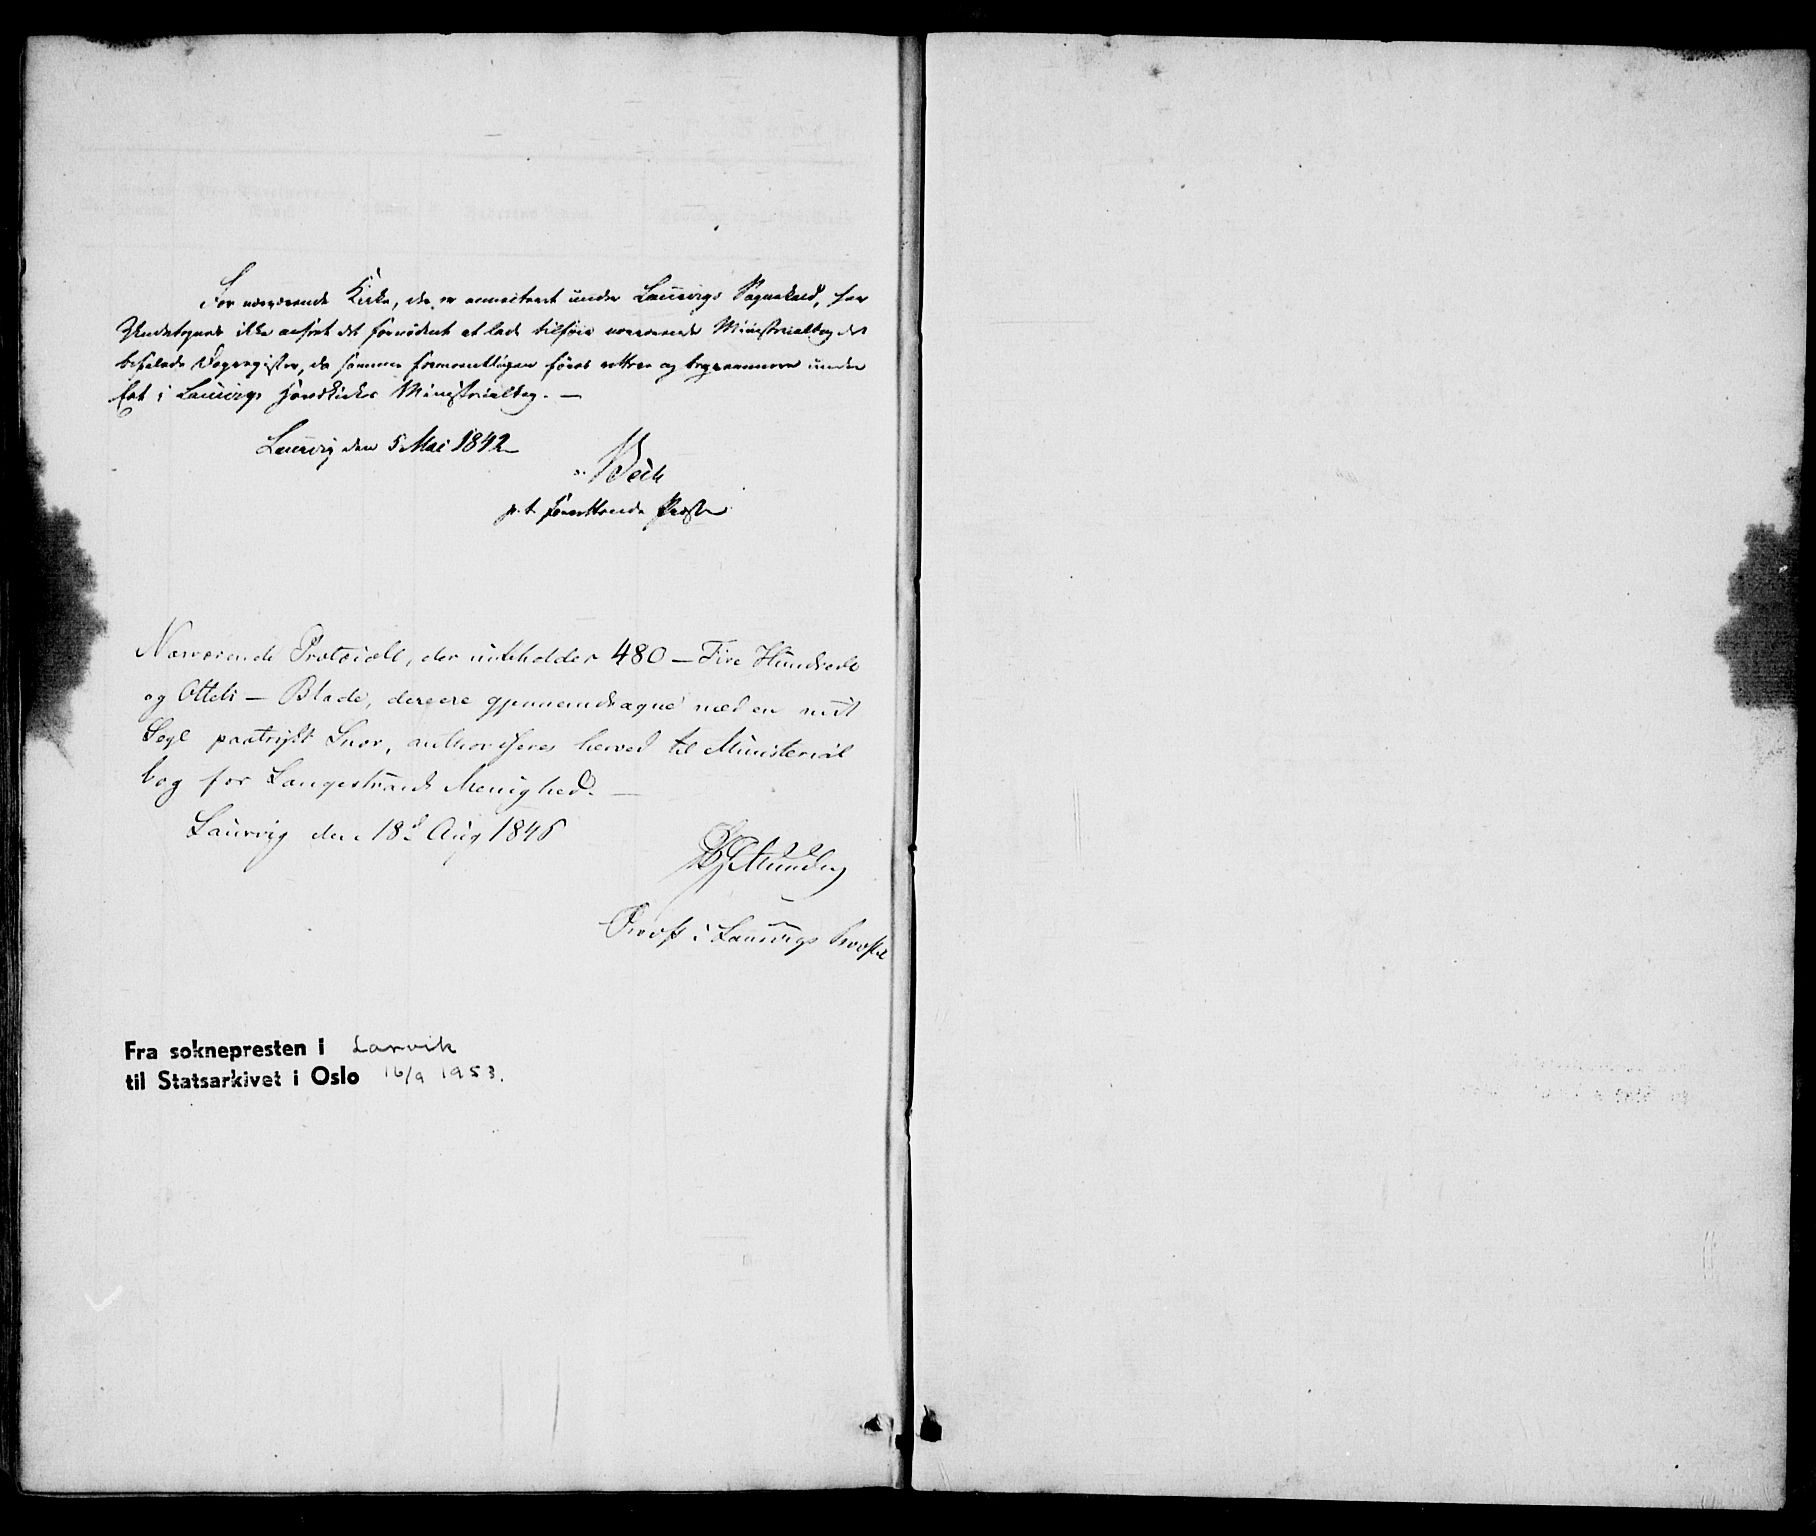 For nærværende Kirke, der er annecteret under Laurvigs Sognekald, har
Undertegnede ikke anseet det fornødent at lade tilføie nærværende Ministerialbog det
befalede Dagregister, da samme formeentligen føres rettere og begvemmere under
Eet i Laurvigs Hovedkirkes Ministerialbog. —
Laurvig den 5 Mai 1842
p. t. forrettende Provst
Nærværende Protocoll, der indeholder 480 – Fire Hundrede
og Otteti – Blade, der ere gjennemdragne med en mit
Segl paatrykt Snor, authoriseres herved til Ministerial
bog for Langestrands Menighed. —
Laurvig den 18d Aug 1845
Provst i Laurvigs Provstie
Fra soknepresten i Larvik
til Statsarkivet i Oslo 16/9 1953.